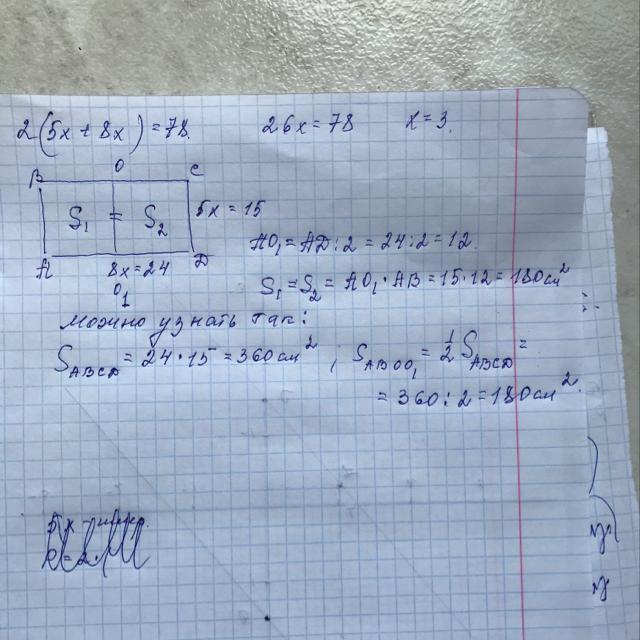 2(5x + 8x) = 78. 26x = 78 x = 3.
B O C
S₁ = S₂ 5x = 15
A 8x = 24 D
O₁
AO₁ = AD : 2 = 24 : 2 = 12.
S₁ = S₂ = AO₁ · AB = 15 · 12 = 180 см²
Можно узнать так:
S_ABCD = 24 · 15 = 360 см² ; S_ABOO₁ = ½ S_ABCD =
= 360 : 2 = 180 см².